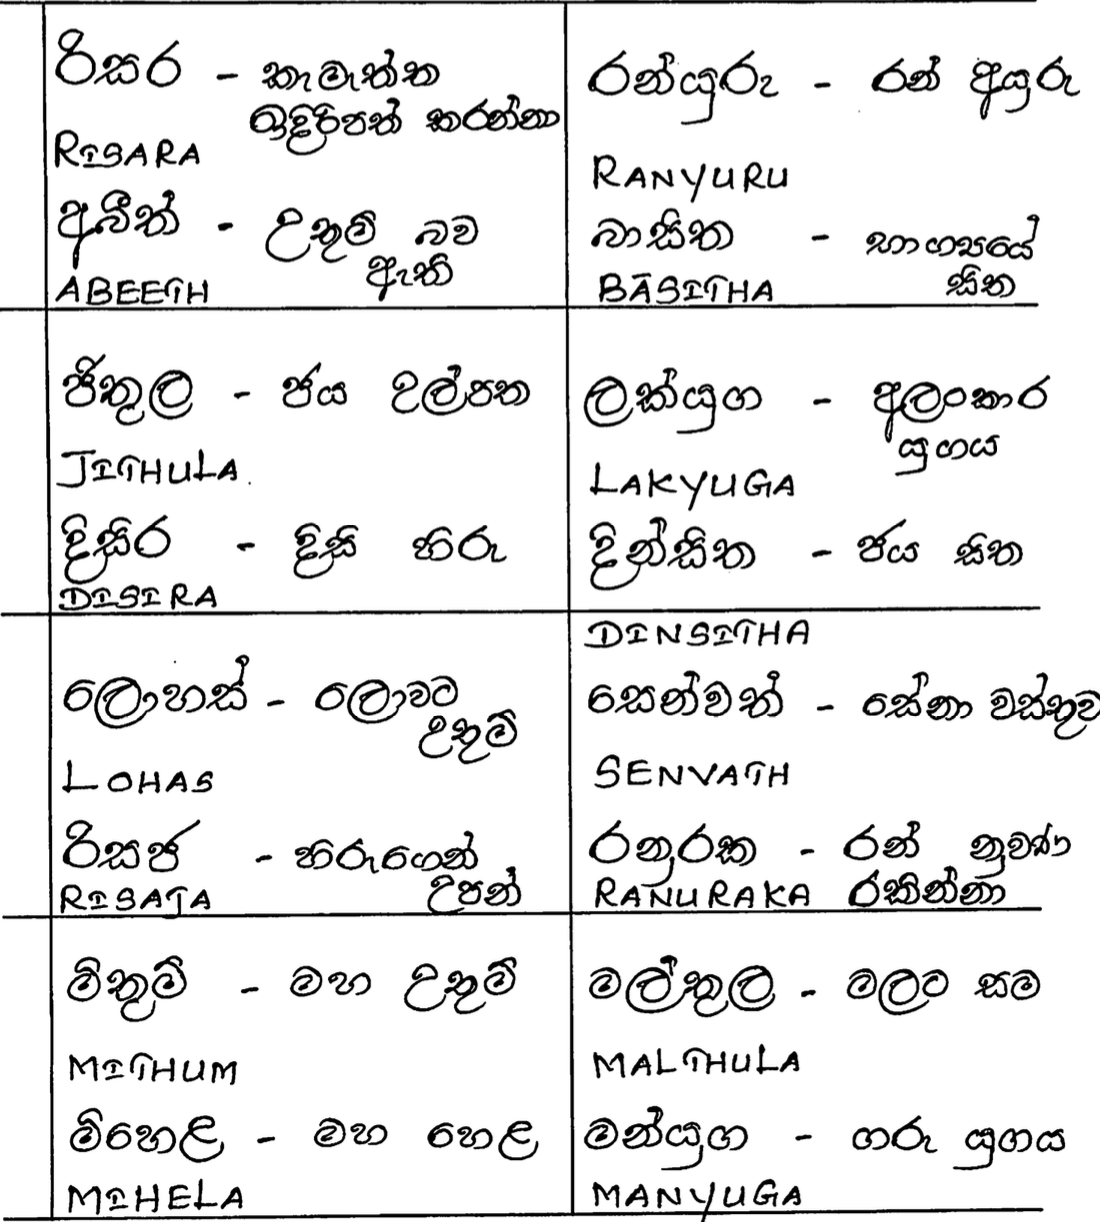 රිසර - කැමැත්ත
ඉදිරිපත් කරන්නා
RISARA
අබීත් - උතුම් බව
ඇති
ABEETH
රන්යුරු - රන් අයුරු
RANYURU
බාසිත - භාග්‍යයේ
සිත
BĀSITHA
ජිතුල - ජය උල්පත
JITHULA
දිසිර - දිසි හිරු
DISIRA
ලක්යුග - අලංකාර
යුගය
LAKYUGA
දින්සිත - ජය සිත
DINSITHA
ලොහස් - ලොවට
උතුම්
LOHAS
රිසජ - හිරුගෙන්
උපන්
RISAJA
සෙන්වත් - සේනා වස්තුව
SENVATH
රනුරක - රන් නුවණ
RANURAKA රකින්නා
මිතුම් - මහ උතුම්
MITHUM
මිහෙළ - මහ හෙළ
MIHELA
මල්තුල - මලට සම
MALTHULA
මන්යුග - ගරු යුගය
MANYUGA